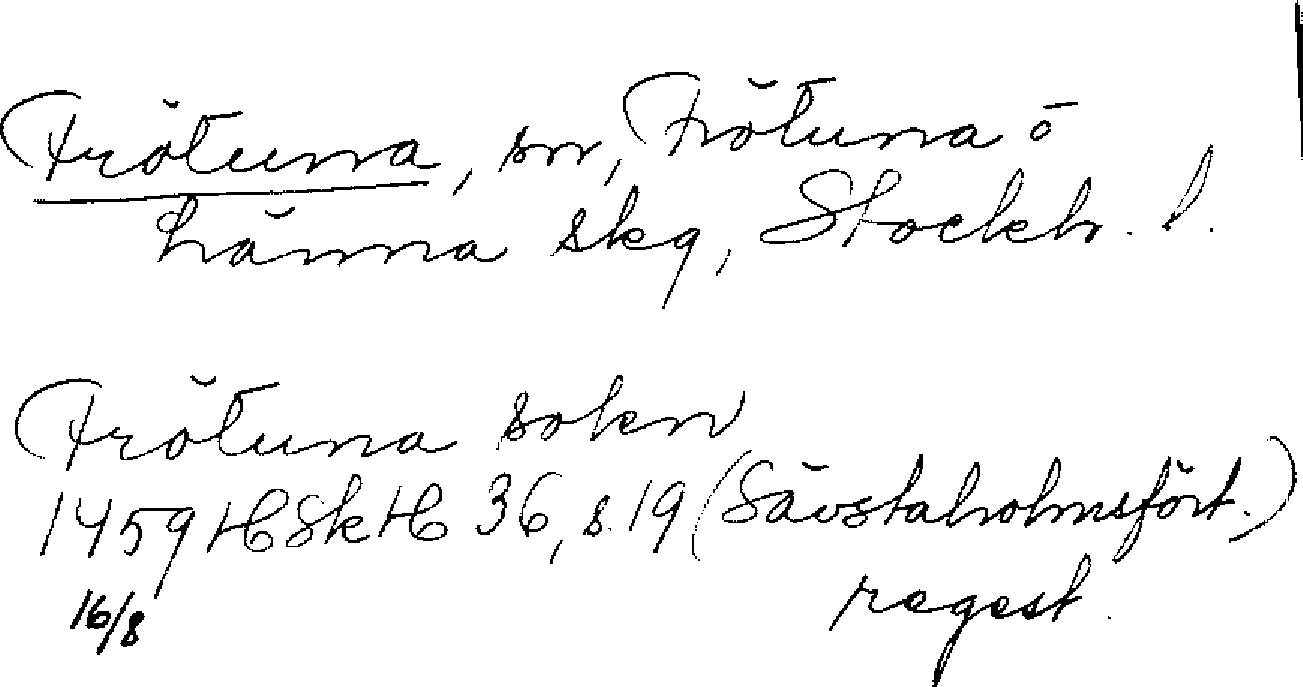 Frötuna, sn, Frötuna o
Länna skg, Stockh. l.
Frötuna sokn
1459 HSkH 36, s. 19 (Sävstaholmsfört.)
16/8 regest.